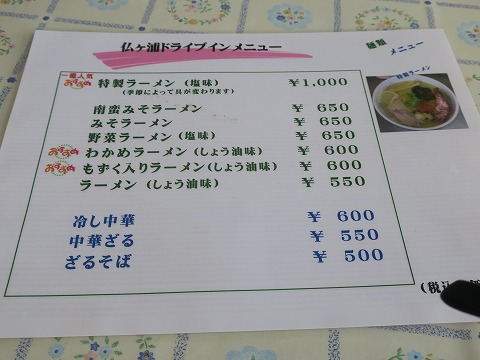 仏ヶ浦ドライブインメニュー
麺類
メニュー
一番人気
おすすめ 特製ラーメン(塩味) ¥1,000
(季節によって具が変わります)
特製ラーメン
南蛮みそラーメン ¥ 650
みそラーメン ¥ 650
野菜ラーメン(塩味) ¥ 650
おすすめ わかめラーメン(しょう油味) ¥ 600
おすすめ もずく入りラーメン(しょう油味) ¥ 600
ラーメン(しょう油味) ¥ 550
冷し中華 ¥ 600
中華ざる ¥ 550
ざるそば ¥ 500
(税込